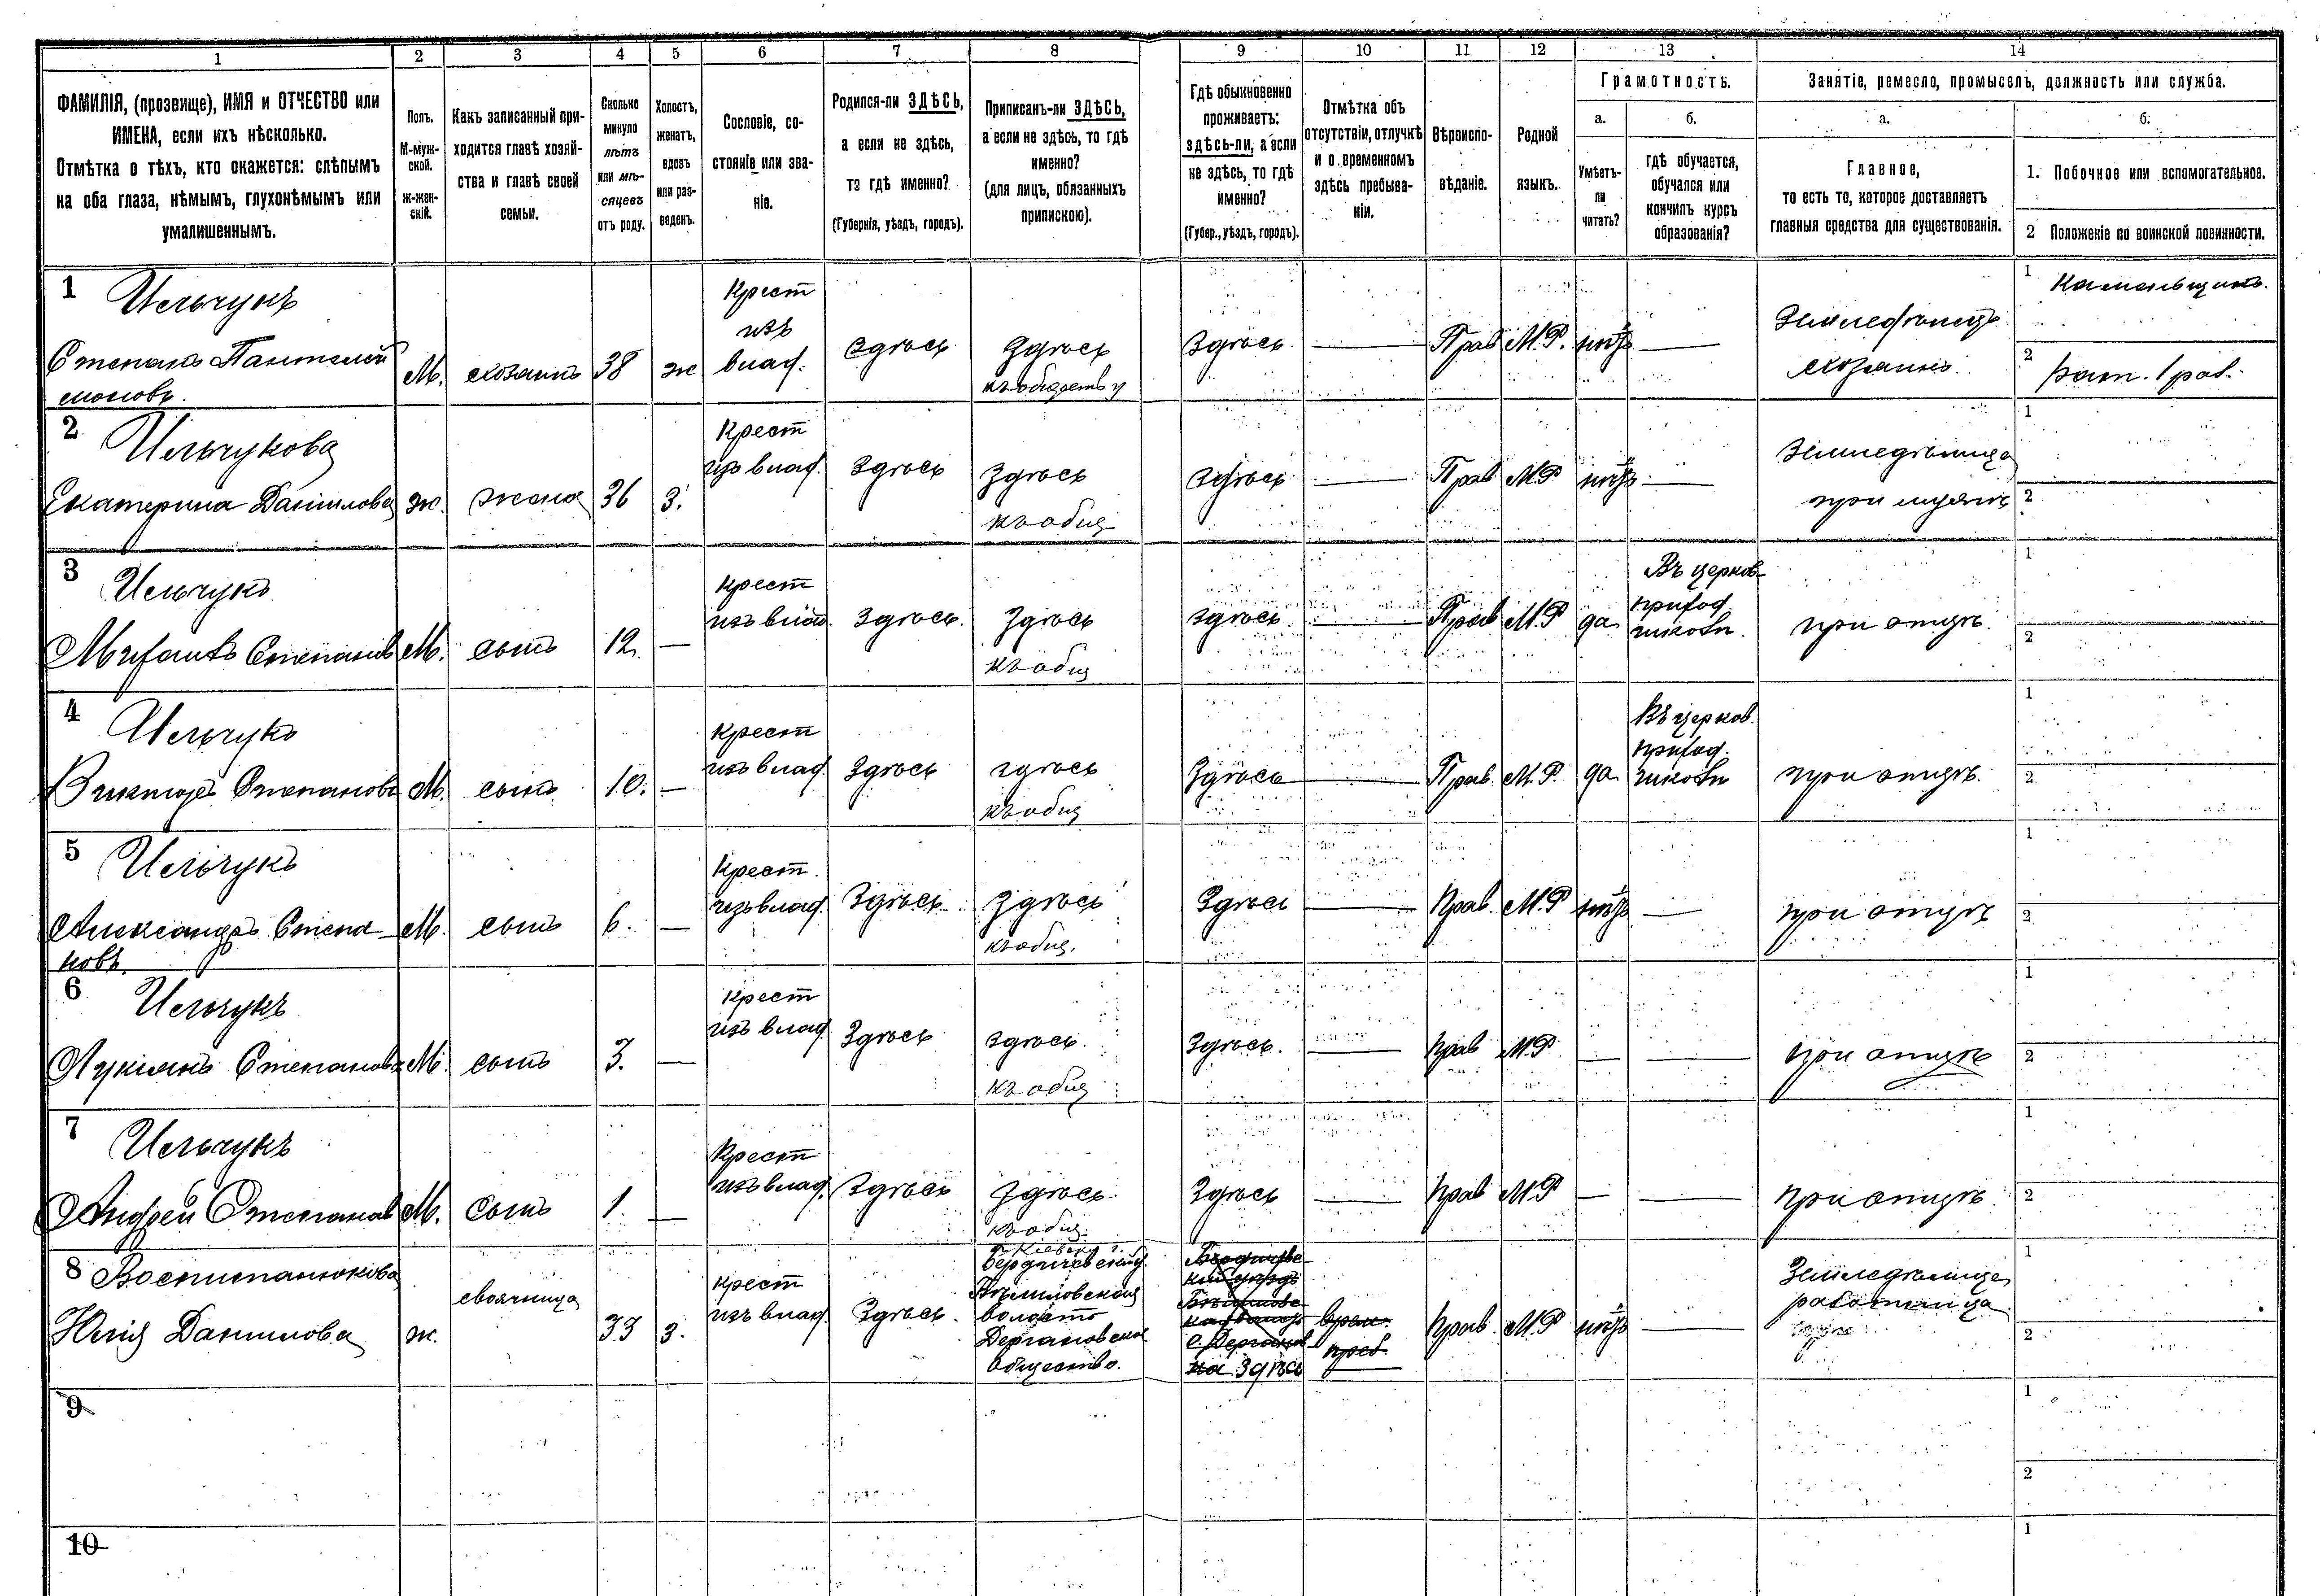 1 2 3 4 5 6 7 8 9 10 11 12 13 14
ФАМИЛІЯ, (прозвище), ИМЯ и ОТЧЕСТВО или
ИМЕНА, если ихъ нѣсколько.
Отмѣтка о тѣхъ, кто окажется: слѣпымъ
на оба глаза, нѣмымъ, глухонѣмымъ или
умалишеннымъ.
Полъ.
М-муж-
ской.
Ж-жен-
скій.
Какъ записанный при-
ходится главѣ хозяй-
ства и главѣ своей
семьи.
Сколько
минуло
лѣтъ
или мѣ-
сяцевъ
отъ роду.
Холостъ,
женатъ,
вдовъ
или раз-
веденъ.
Сословіе, со-
стояніе или зва-
ніе.
Родился-ли ЗДѢСЬ,
а если не здѣсь,
то гдѣ именно?
(Губернія, уѣздъ, городъ).
Приписанъ-ли ЗДѢСЬ,
а если не здѣсь, то гдѣ
именно?
(для лицъ, обязанныхъ
припискою).
Гдѣ обыкновенно
проживаетъ:
здѣсь-ли, а если
не здѣсь, то гдѣ
именно?
(Губер., уѣздъ, городъ).
Отмѣтка объ
отсутствіи, отлучкѣ
и о временномъ
здѣсь пребыва-
ніи.
Вѣроиспо-
вѣданіе.
Родной
языкъ.
Грамотность.
а.
Умѣетъ-
ли
читать?
б.
гдѣ обучается,
обучался или
кончилъ курсъ
образованія?
Занятіе, ремесло, промыселъ, должность или служба.
а.
Главное,
то есть то, которое доставляетъ
главныя средства для существованія.
б.
1. Побочное или вспомогательное.
2 Положеніе по воинской повинности.
1 Ильчукъ
Степанъ Пантелей
моновъ.
М. хозяинъ 38 ж
Крест
изъ
влад.
Здѣсь
Здѣсь
къ обществу
Здѣсь. — Прав М.Р. нѣтъ —
Земледѣлецъ
хозяинъ
1 Каменьщикъ.
2 рат. 1 раз.
2 Ильчукова
Екатерина Данилова ж. жена 36 З.
Крест
изъ влад.
Здѣсь
Здѣсь
къ общ
Здѣсь — Прав М.Р нѣтъ —
Земледѣлица
при мужѣ
1
2
3 Ильчукъ
Михаилъ Степановъ М. сынъ 12. —
Крест
изъ влад.
Здѣсь.
Здѣсь
къ общ
Здѣсь. — Прав М.Р да
Въ церков-
приход.
школѣ.
при отцѣ.
1
2
4 Ильчукъ
Викторъ Степановъ М. сынъ 10. —
Крест
изъ влад.
Здѣсь
здѣсь
къ общ
Здѣсь — Прав. М.Р. да
Въ церков.
приход.
школѣ
при отцѣ.
1
2
5 Ильчукъ
Александръ Степа-
новъ.
М. сынъ 6. —
Крест.
изъ влад.
Здѣсь.
Здѣсь
къ общ.
Здѣсь — Прав. М.Р нѣтъ —
при отцѣ
1
2
6 Ильчукъ
Лукіянъ Степановъ М. сынъ 3. —
Крест
изъ влад.
Здѣсь
Здѣсь.
къ общ
Здѣсь. — Прав М.Р — —
при отцѣ
1
2
7 Ильчукъ
Андрей Степановъ М. Сынъ 1. —
Крест
изъ влад.
Здѣсь
Здѣсь.
къ общ.
Здѣсь — Прав М.Р — —
при отцѣ.
1
2
8 Воспитанюкова
Юлія Данилова ж.
своячница
33 З.
Крест
изъ влад.
Здѣсь.
Кіевск. г.
Бердичевскаго у.
волость
Дергановское
общество.
Здѣсь
врем.
преб.
Прав. М.Р нѣтъ —
Земледѣлица
работница
1
2
9
1
2
10
1